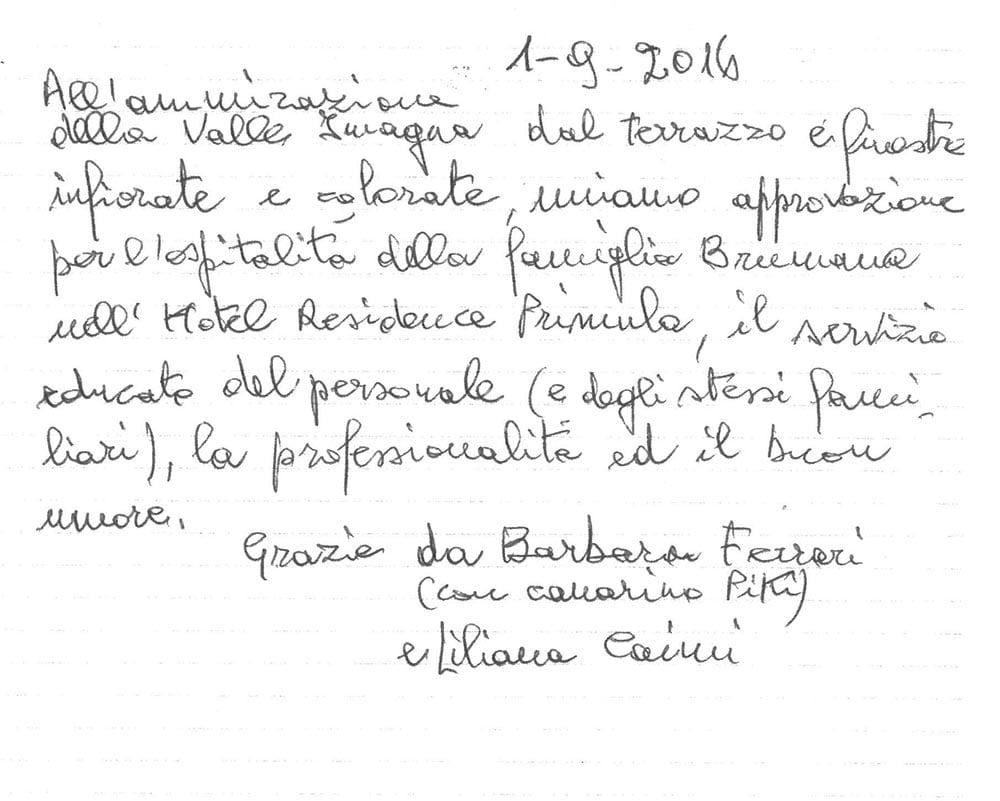 1-9-2016
All'ammirazione
della Valle Imagna dal terrazzo e finestre
infiorate e colorate, uniamo approvazione
per l'ospitalità della famiglia Brumana
nell' Hotel Residence Primula, il servizio
educato del personale (e degli stessi fami_
liari), la professionalità ed il buon
umore.
Grazie da Barbara Ferrari
(con canarino Piki)
e Liliana Caimi